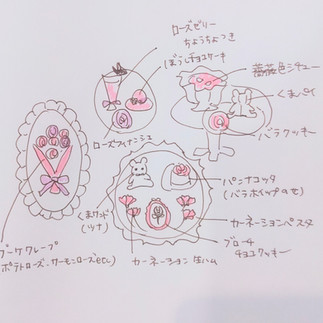 ローズゼリー
ちょうちょつき
ぼうしチョコケーキ
薔薇色シチュー
くまパイ
ローズフィナンシェ
バラクッキー
パンナコッタ
(バラホイップのせ)
くまサンド
(ツナ)
カーネーションパスタ
ブローチ
チョコクッキー
カーネーション生ハム
ブーケクレープ
ポテトローズ・サーモンローズetc)